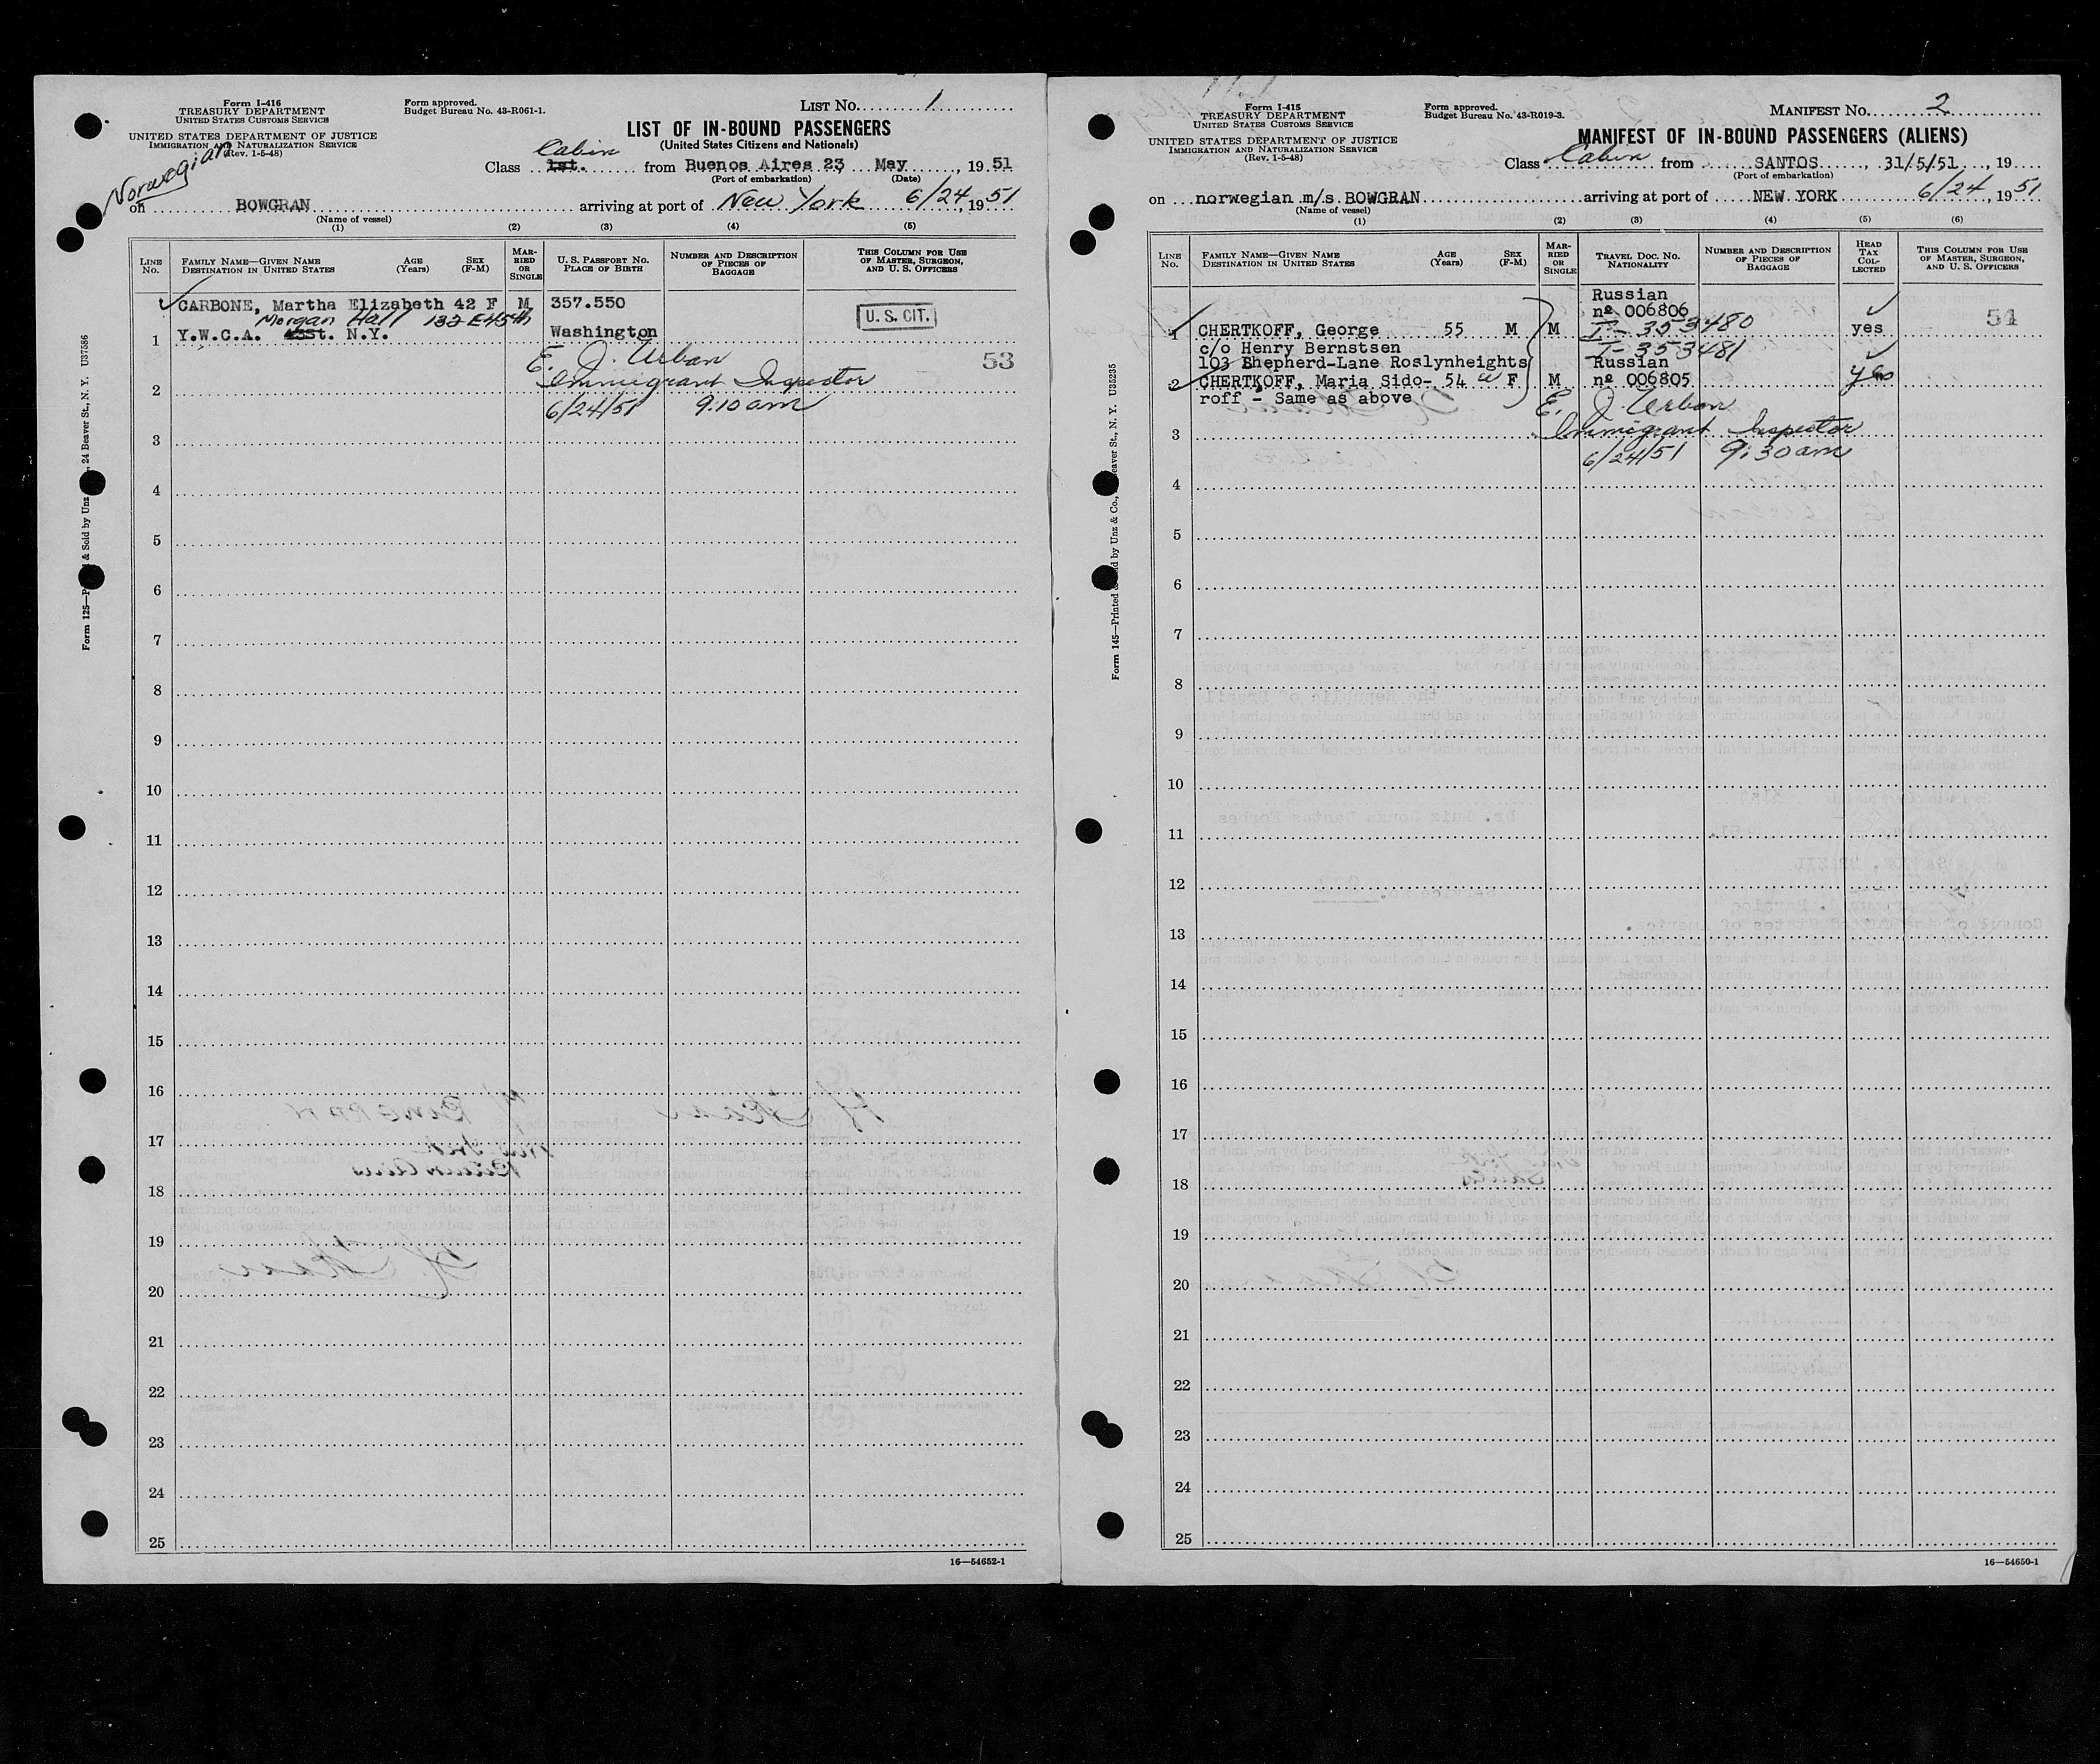 Form I-416
TREASURY DEPARTMENT
UNITED STATES CUSTOMS SERVICE
UNITED STATES DEPARTMENT OF JUSTICE
IMMIGRATION AND NATURALIZATION SERVICE
(Rev. 1-5-48)
Form approved.
Budget Bureau No. 43-R061-1.
LIST No. 1
LIST OF IN-BOUND PASSENGERS
(United States Citizens and Nationals)
Cabin
Class 1st. from Buenos Aires 23 May, 1951
(Port of embarkation) (Date)
Norwegian
on BOWGRAN arriving at port of New York 6/24, 1951
(Name of vessel)
(1) (2) (3) (4) (5)
LINE No.
FAMILY NAME—GIVEN NAME
DESTINATION IN UNITED STATES
AGE (Years)
SEX (F-M)
MARRIED OR SINGLE
U. S. PASSPORT NO.
PLACE OF BIRTH
NUMBER AND DESCRIPTION OF PIECES OF BAGGAGE
THIS COLUMN FOR USE OF MASTER, SURGEON, AND U. S. OFFICERS
CARBONE, Martha Elizabeth 42 F M 357.550
U. S. CIT.
Morgan Hall 132 E 45th
1 Y.W.C.A. St. N.Y. Washington
E. J. Urban
53
Immigrant Inspector
2
6/24/51 9.10 am
3
4
5
6
7
8
9
10
11
12
13
14
15
16
17
18
19
20
21
22
23
24
25
16—54652-1
24 Beaver St., N. Y. U37586
Form 125—
& Sold by Unz
Form I-415
TREASURY DEPARTMENT
UNITED STATES CUSTOMS SERVICE
UNITED STATES DEPARTMENT OF JUSTICE
IMMIGRATION AND NATURALIZATION SERVICE
(Rev. 1-5-48)
Form approved.
Budget Bureau No. 43-R019-3.
MANIFEST No. 2
MANIFEST OF IN-BOUND PASSENGERS (ALIENS)
Class Cabin from SANTOS, 31/5/51, 19
(Port of embarkation)
on norwegian m/s BOWGRAN arriving at port of NEW YORK 6/24, 1951
(Name of vessel)
(1) (2) (3) (4) (5) (6)
LINE No.
FAMILY NAME—GIVEN NAME
DESTINATION IN UNITED STATES
AGE (Years)
SEX (F-M)
MARRIED OR SINGLE
TRAVEL DOC. NO.
NATIONALITY
NUMBER AND DESCRIPTION OF PIECES OF BAGGAGE
HEAD TAX COLLECTED
THIS COLUMN FOR USE OF MASTER, SURGEON, AND U. S. OFFICERS
Russian
nº 006806
54
1 CHERTKOFF, George 55 M M I-353480 yes
c/o Henry Bernstsen I-353481
103 Shepherd-Lane Roslynheights Russian
2 CHERTKOFF, Maria Sido- 54 F M nº 006805 yes
roff - Same as above
E. J. Urban
3 Immigrant Inspector
6/24/51 9:30 am
4
5
6
7
8
9
10
11
12
13
14
15
16
17
18
19
20
21
22
23
24
25
16—54650-1
Form 145—Printed
by Unz & Co.,
St., N. Y. U35235